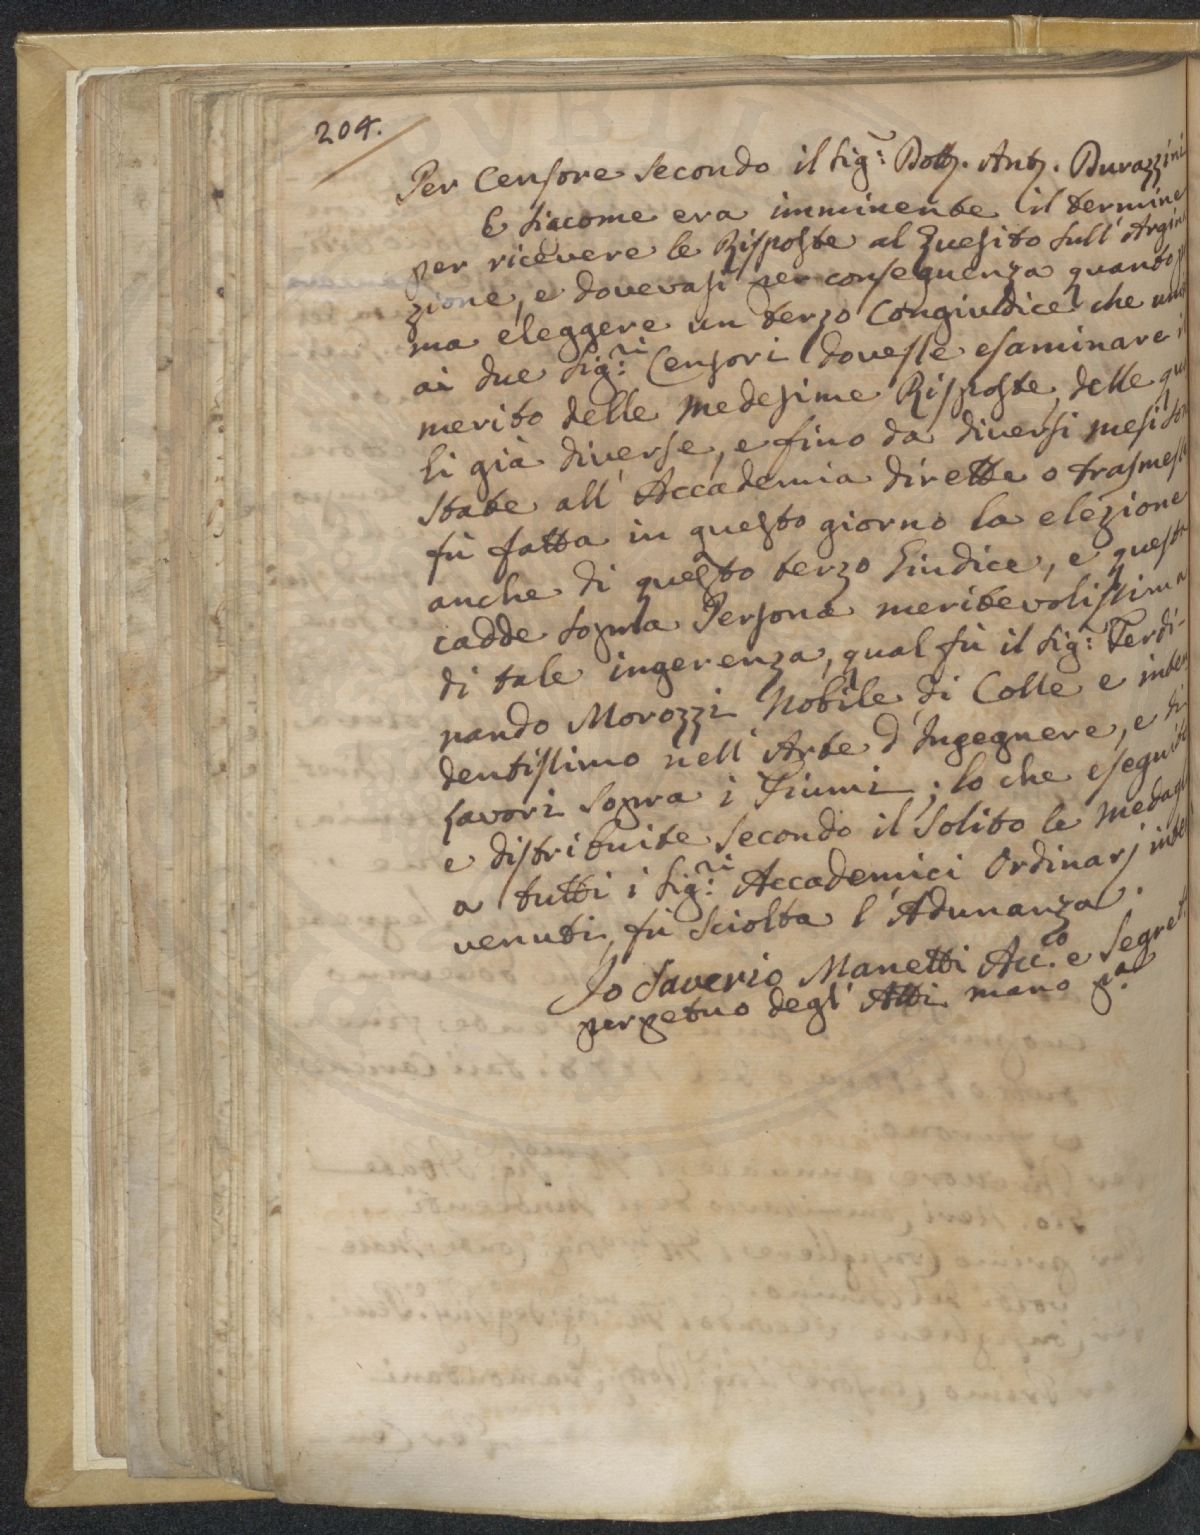 204.
Per Censore Secondo il Sig: Dott. Ant. Durazzini
E siccome era imminente il termine
per ricevere le Risposte al Quesito sull' Argina
zione, e dovevasi per conseguenza quanto p
ma eleggere un terzo Congiudice che uni
ai due Sig:ri Censori dovesse esaminare i
merito delle medesime Risposte, delle qua
li già diverse, e fino da diversi mesi son
state all' Accademia dirette o trasmesse
fù fatta in questo giorno la elezione
anche di questo terzo Giudice, e questa
cadde sopra Persona meritevolissima
di tale ingerenza, qual fù il Sig: Ferdi-
nando Morozzi Nobile di Colle e inten
dentissimo nell' Arte d' Ingegnere, e di
Lavori sopra i Fiumi; lo che eseguito
e distribuite secondo il solito le medagl
a tutti i Sig:ri Accademici Ordinarj inter
venuti, fù sciolta l' Adunanza.
Io Saverio Manetti Acc.co e Segret.
perpetuo degl' Atti mano pa